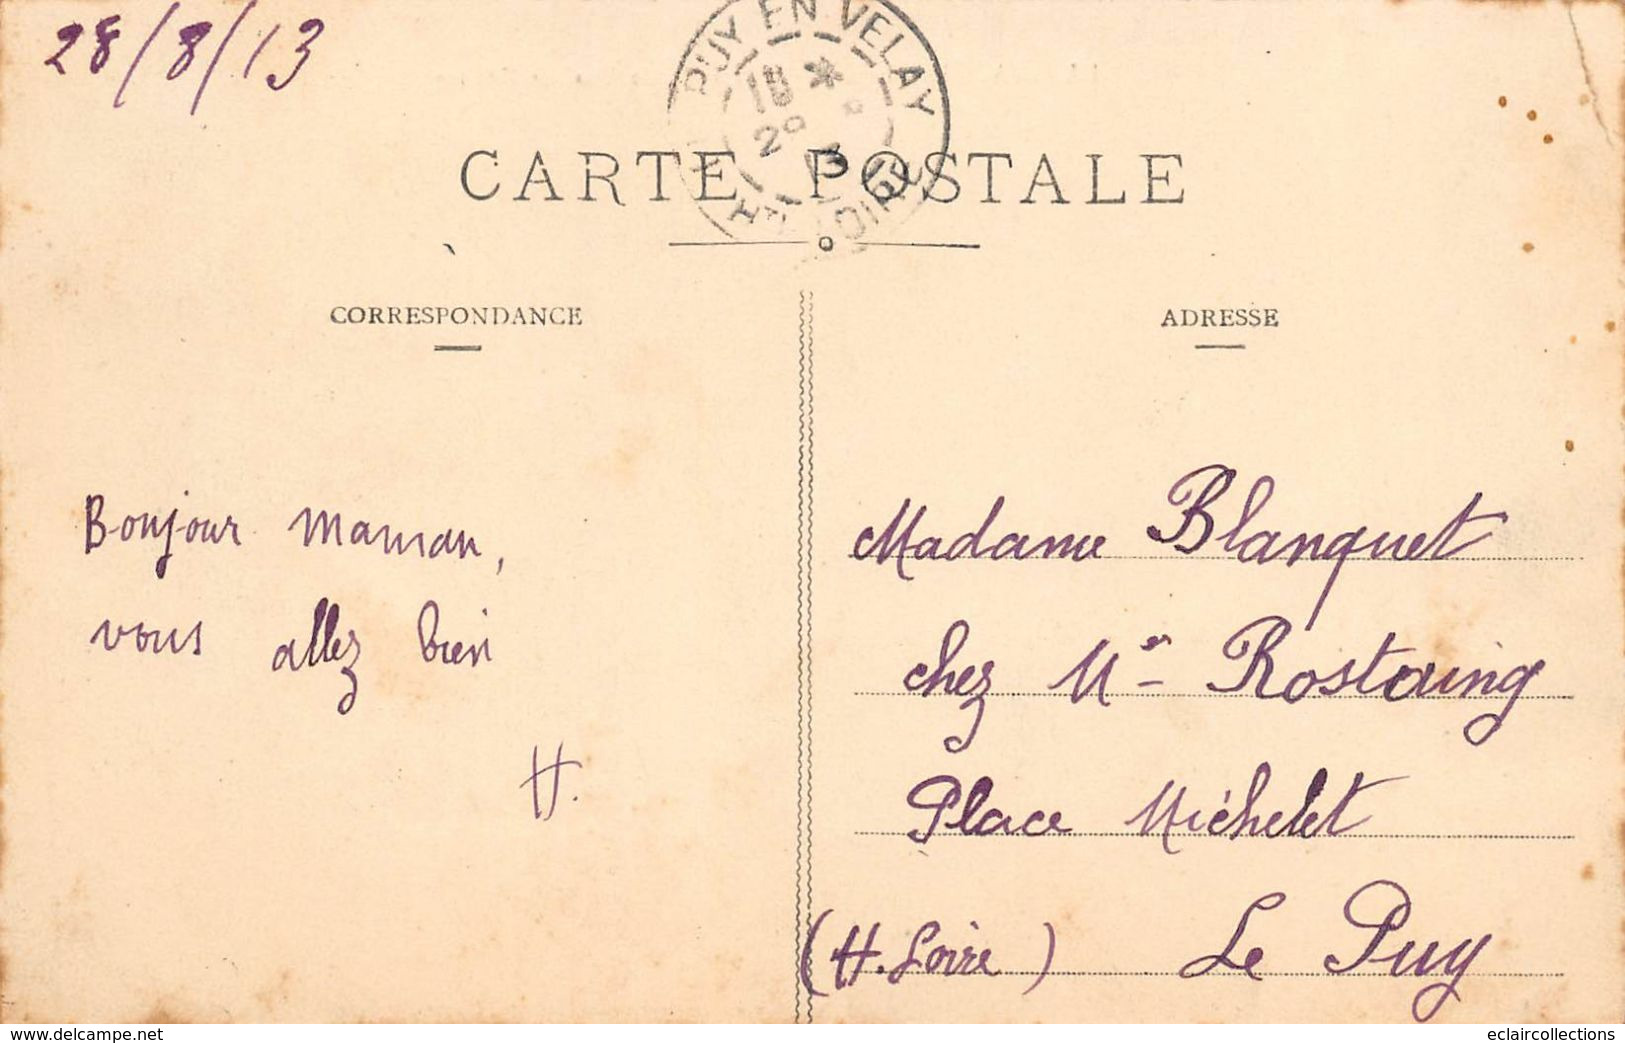 28/8/13
PUY EN VELAY
18 *
29 8
13
Hte LOIRE
CARTE POSTALE
CORRESPONDANCE
ADRESSE
Bonjour Maman,
vous allez bien
H.
Madame Blanquet
chez Mr Rostaing
Place Michelet
(H. Loire) Le Puy
https://www.delcampe.net
eclaircollections